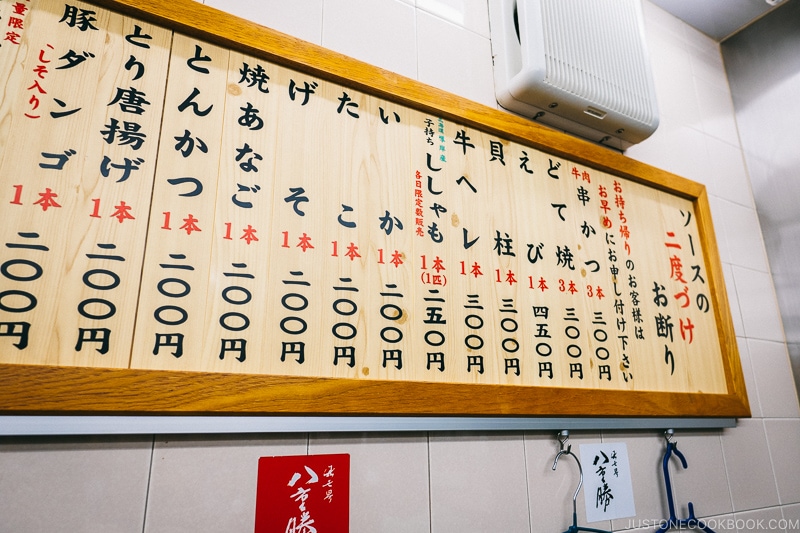 ソースの
二度づけ
お断り
お持ち帰りのお客様は
お早めにお申し付け下さい
牛肉
串かつ 3本 三〇〇円
どて焼 3本 三〇〇円
えび 1本 四五〇円
貝柱 1本 三〇〇円
牛ヘレ 1本 三〇〇円
子持ち
ししゃも 1本(1匹) 二五〇円
各日限定数販売
いか 1本 二〇〇円
たこ 1本 二〇〇円
げそ 1本 二〇〇円
焼あなご 1本 二〇〇円
とんかつ 1本 二〇〇円
とり唐揚げ 1本 二〇〇円
豚ダンゴ 1本 二〇〇円
(しそ入り)
量限定
八重勝
八重勝
JUSTONECOOKBOOK.COM